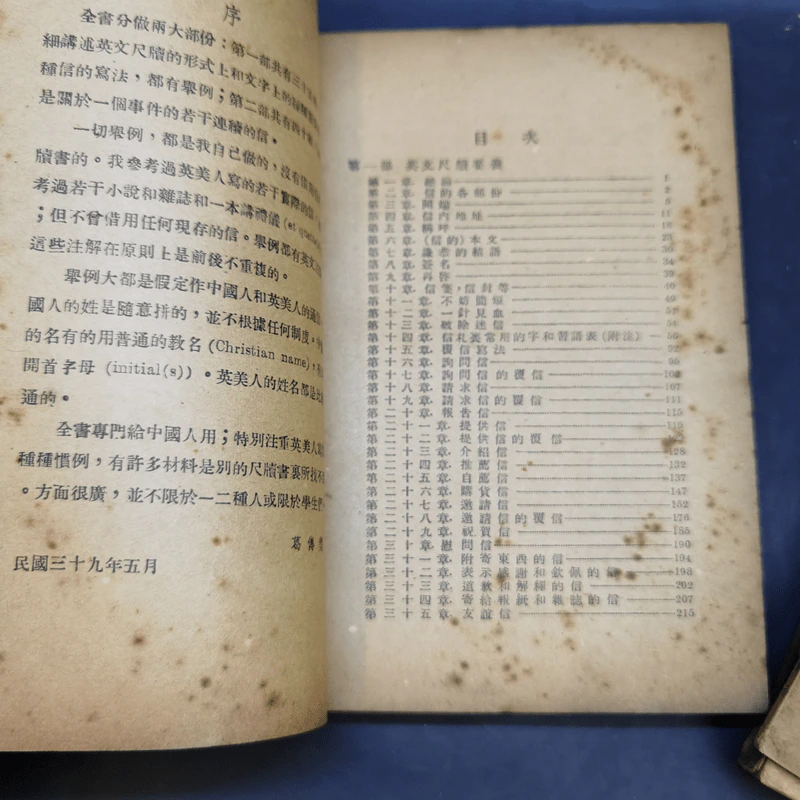 序
全書分做兩大部份：第一部共有三十五
細講述英文尺牘的形式上和文字上的
種信的寫法，都有舉例；第二部共有四十
是關於一個事件的若干連續的信。
一切舉例，都是我自己做的，沒有
牘書的。我參考過英美人寫的若干實際的信
考過若干小說和雜誌和一本講禮儀(et
；但不曾借用任何現存的信。舉例都有英文
這些注解在原則上是前後不重複的。
舉例大都是假定作中國人和英美人的通
國人的姓是隨意拼的，並不根據任何制度。
的名有的用普通的教名(Christian name)，
開首字母 (initial(s))。英美人的姓名都是
通的。
全書專門給中國人用；特別注重英美人
種種慣例，有許多材料是別的尺牘書裏所找不
。方面很廣，並不限於一二種人或限於學生
葛傳
民國三十九年五月
目次
第一部 英文尺牘要義
第一章. 1
第二章. 信的各部份
第三章. 開端
第四章. 信內地址 11
第五章. 稱呼
第六章. (信的)本文 23
第七章. 謙恭的結語
第八章. 簽名
第九章. 再啓
第十章. 信箋，信封等 40
第十一章. 不妨簡短
第十二章. 一針見血
第十三章. 破除迷信 54
第十四章. 信札裏常用的字和習語表(附注) 56
第十五章. 覆信寫法
第十六章. 詢問信 95
第十七章. 詢問信的覆信
第十八章. 請求信 107
第十九章. 請求信的覆信 111
第二十章. 報告信 115
第二十一章. 提供信 119
第二十二章. 提供信的覆信
第二十三章. 介紹信 128
第二十四章. 推薦信 132
第二十五章. 自薦信 137
第二十六章. 購貨信 147
第二十七章. 邀請信 152
第二十八章. 邀請信的覆信 176
第二十九章. 祝賀信 185
第三十章. 慰問信 190
第三十一章. 附寄東西的信 194
第三十二章. 表示感謝和欽佩的信 198
第三十三章. 道歉和解釋的信 202
第三十四章. 寄給報紙和雜誌的信 207
第三十五章. 友誼信 215